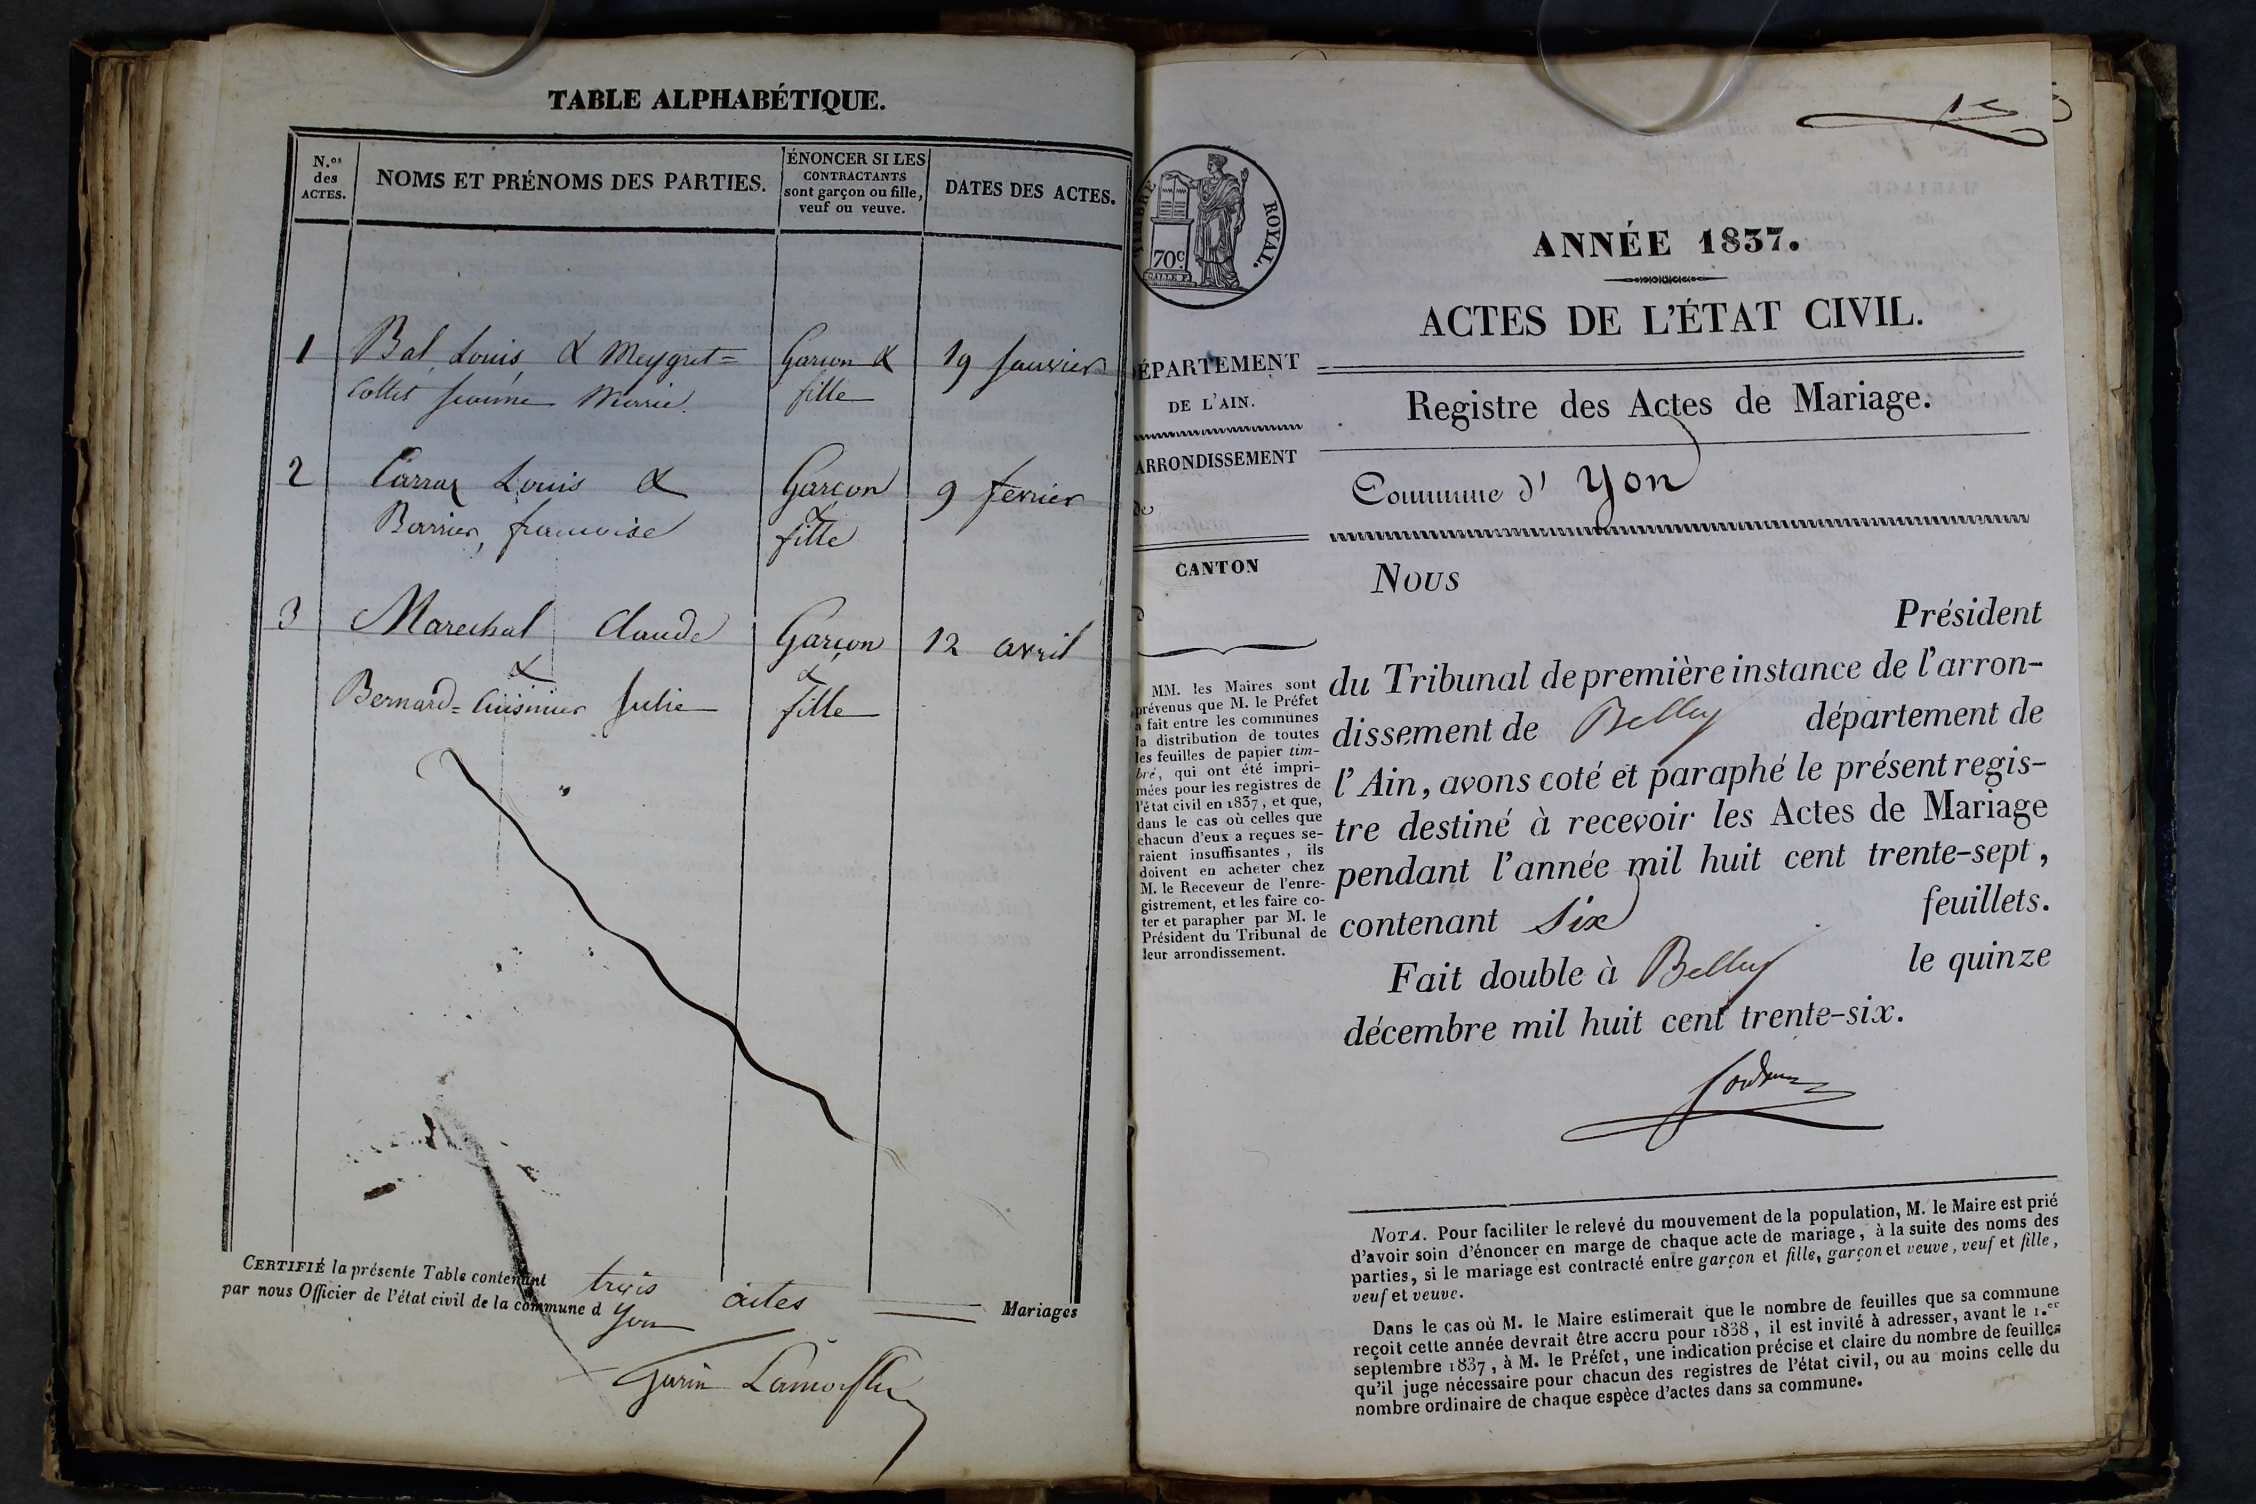 TABLE ALPHABÉTIQUE.
N.os des ACTES.
NOMS ET PRÉNOMS DES PARTIES.
ÉNONCER SI LES CONTRACTANTS sont garçon ou fille, veuf ou veuve.
DATES DES ACTES.
1 Bal Louis & Meygret= Garcon & 19 Janvier
Collet Jeanne Marie. fille
2 Carraz Louis & Garcon 9 fevrier
Borrier, francoise & fille
3 Marechal Claude Garçon 12 avril
& &
Bernard= Cuisinier Julie fille
CERTIFIÉ la présente Table contenant trois actes Mariages
par nous Officier de l'état civil de la commune d Yon
Garin
TIMBRE ROYAL.
70c
DÉPARTEMENT
DE L'AIN.
ARRONDISSEMENT
de
CANTON
d
MM. les Maires sont
prévenus que M. le Préfet
a fait entre les communes
la distribution de toutes
les feuilles de papier tim-
bré, qui ont été impri-
mées pour les registres de
l'état civil en 1837, et que,
dans le cas où celles que
chacun d'eux a reçues se-
raient insuffisantes, ils
doivent en acheter chez
M. le Receveur de l'enre-
gistrement, et les faire co-
ter et parapher par M. le
Président du Tribunal de
leur arrondissement.
ANNÉE 1837.
ACTES DE L'ÉTAT CIVIL.
Registre des Actes de Mariage.
Commune d' Yon
Nous
Président
du Tribunal de première instance de l'arron-
dissement de Belley département de
l'Ain, avons coté et paraphé le présent regis-
tre destiné à recevoir les Actes de Mariage
pendant l'année mil huit cent trente-sept,
contenant Six feuillets.
Fait double à Belley le quinze
décembre mil huit cent trente-six.
NOTA. Pour faciliter le relevé du mouvement de la population, M. le Maire est prié
d'avoir soin d'énoncer en marge de chaque acte de mariage, à la suite des noms des
parties, si le mariage est contracté entre garçon et fille, garçon et veuve, veuf et fille,
veuf et veuve.
Dans le cas où M. le Maire estimerait que le nombre de feuilles que sa commune
reçoit cette année devrait être accru pour 1838, il est invité à adresser, avant le 1.er
septembre 1837, à M. le Préfet, une indication précise et claire du nombre de feuilles
qu'il juge nécessaire pour chacun des registres de l'état civil, ou au moins celle du
nombre ordinaire de chaque espèce d'actes dans sa commune.